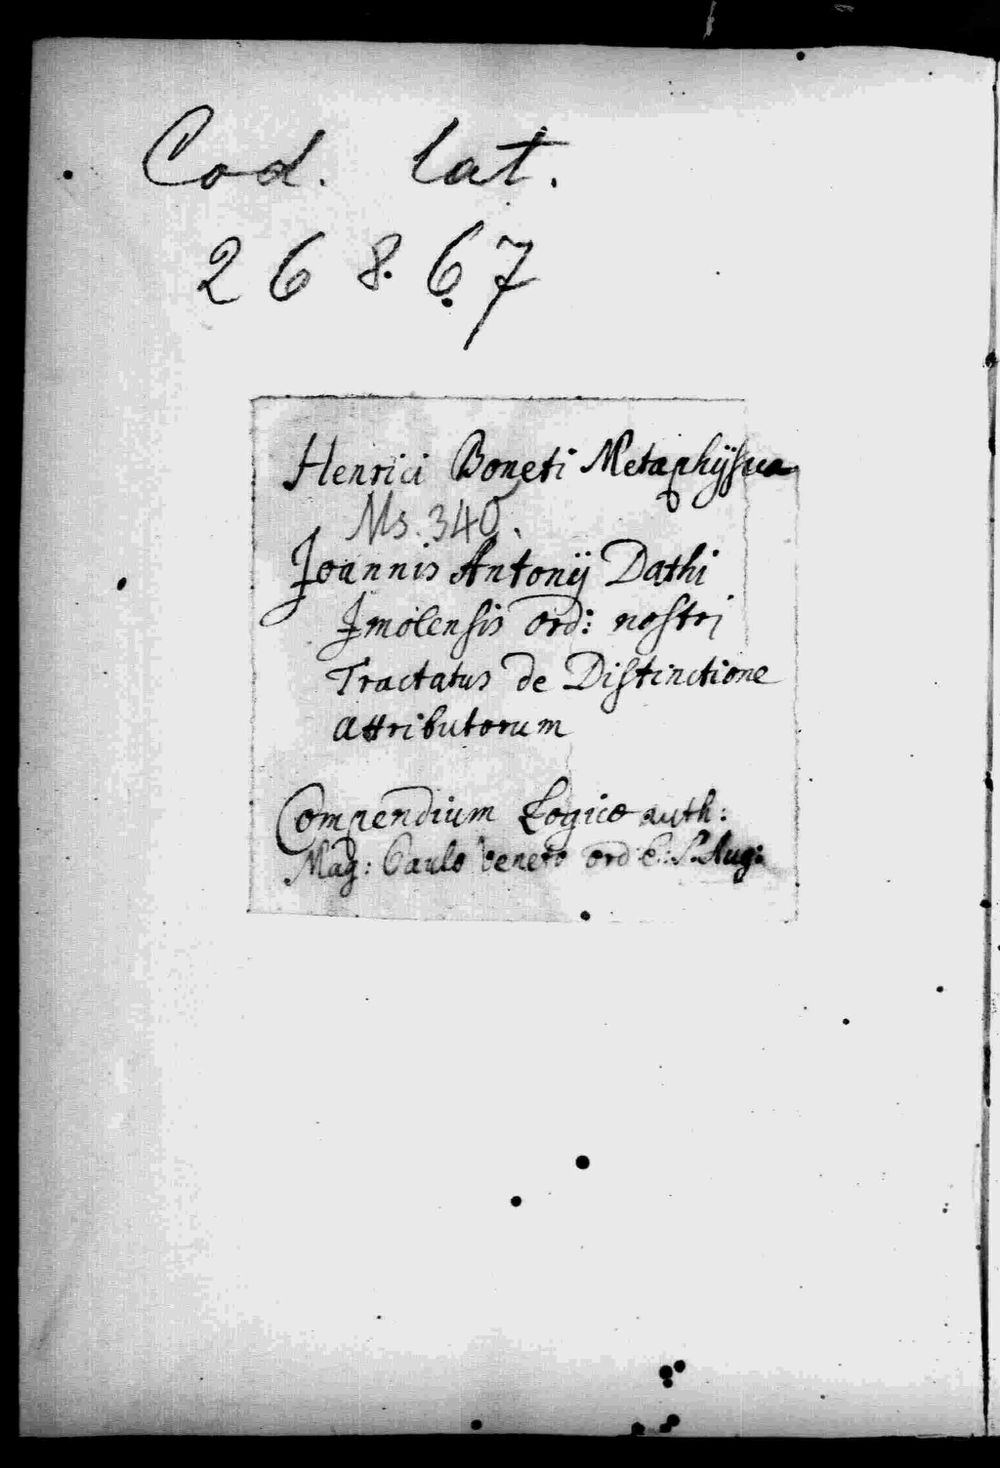 Cod. lat.
26867
Henrici Boneti Metaphÿsica
Ms. 340.
Joannis Antonÿ Dathi
Jmolensis ord: nostri
Tractatus de Distinctione
attributorum
Compendium Logicæ auth:
Mag: Paulo Veneto ord E: S. Aug: